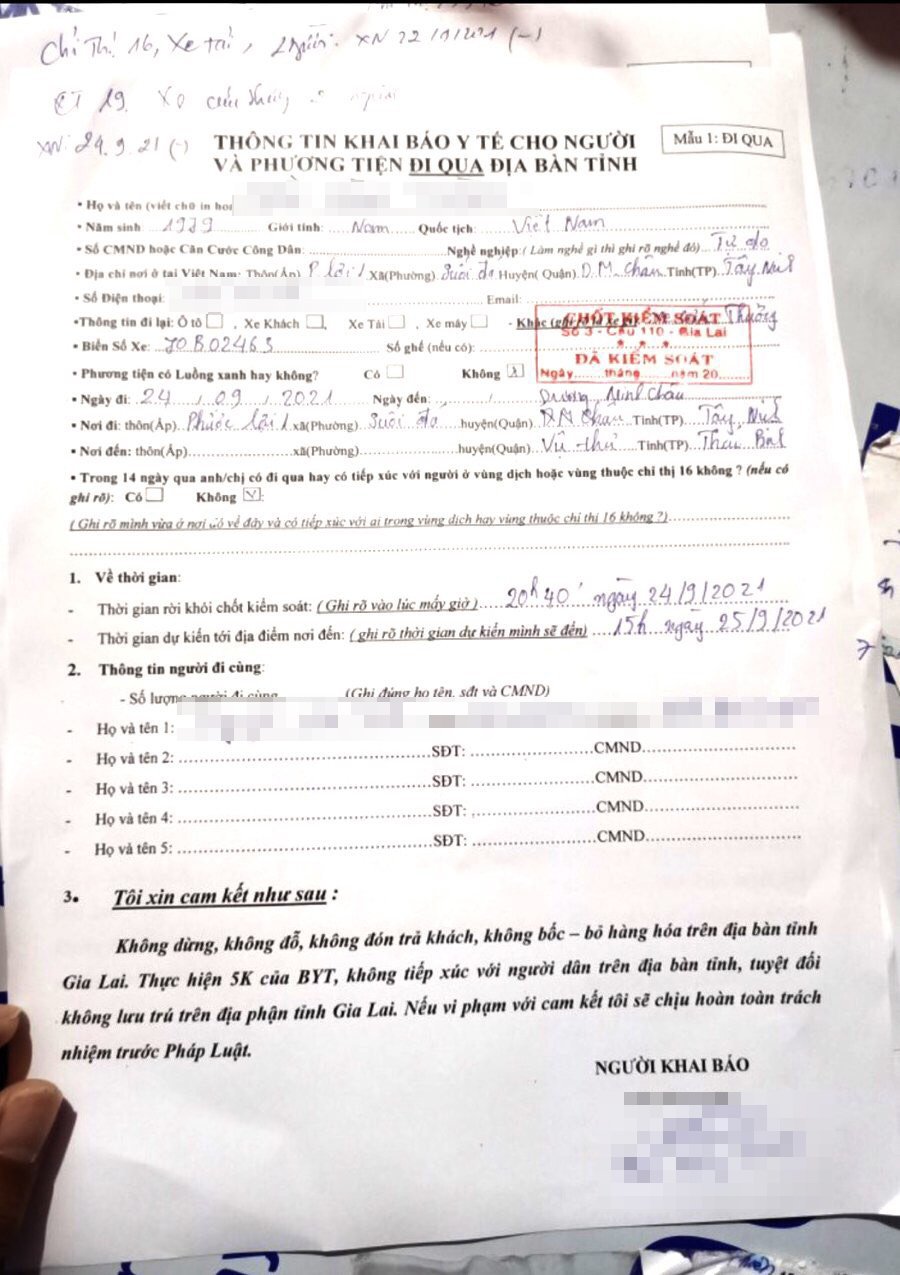 Chỉ Thị 16, Xe tải, 2 người. XN 22/9/2021 (-)
CT 19. Xe cứu thương
XN: 24.9.21 (-)
THÔNG TIN KHAI BÁO Y TẾ CHO NGƯỜI
VÀ PHƯƠNG TIỆN ĐI QUA ĐỊA BÀN TỈNH
Mẫu 1: ĐI QUA
• Họ và tên (viết chữ in hoa
• Năm sinh 1979 Giới tính: Nam Quốc tịch: Việt Nam
• Số CMND hoặc Căn Cước Công Dân: Nghề nghiệp: ( Làm nghề gì thì ghi rõ nghề đó) Tự do
• Địa chỉ nơi ở tại Việt Nam: Thôn(Ấp) P lãi 1 Xã(Phường) Suối đá Huyện( Quận) D.M. Châu Tỉnh(TP) Tây Ninh
• Số Điện thoại: Email:
•Thông tin đi lại: Ô tô , Xe Khách , Xe Tải , Xe máy - Khác (ghi rõ là xe gì) Thương
CHỐT KIỂM SOÁT
Số 3 - Chư 110 - Gia Lai
ĐÃ KIỂM SOÁT
Ngày......tháng......năm 20......
• Biển Số Xe: 70B02463 Số ghế (nếu có):
• Phương tiện có Luồng xanh hay không? Có Không X
• Ngày đi: 24 / 09 / 2021 Ngày đến: / / Dương Minh Châu
• Nơi đi: thôn(Ấp) Phước lãi 1 xã(Phường) Suối đá huyện(Quận) Châu Tỉnh(TP) Tây Ninh
• Nơi đến: thôn(Ấp) xã(Phường) huyện(Quận) Vũ thư Tỉnh(TP) Thái Bình
• Trong 14 ngày qua anh/chị có đi qua hay có tiếp xúc với người ở vùng dịch hoặc vùng thuộc chỉ thị 16 không ? (nếu có
ghi rõ): Có Không V
( Ghi rõ mình vừa ở nơi nào về đây và có tiếp xúc với ai trong vùng dịch hay vùng thuộc chỉ thị 16 không ?)
1. Về thời gian:
- Thời gian rời khỏi chốt kiểm soát: ( Ghi rõ vào lúc mấy giờ) 20h 40' ngày 24/9/2021
- Thời gian dự kiến tới địa điểm nơi đến: ( ghi rõ thời gian dự kiến mình sẽ đến) 15h ngày 25/9/2021
2. Thông tin người đi cùng:
- Số lượng người đi cùng (Ghi đúng họ tên, sđt và CMND)
- Họ và tên 1:
- Họ và tên 2: SĐT: CMND
- Họ và tên 3: SĐT: CMND
- Họ và tên 4: SĐT: CMND
- Họ và tên 5: SĐT: CMND
3. Tôi xin cam kết như sau :
Không dừng, không đỗ, không đón trả khách, không bốc – bỏ hàng hóa trên địa bàn tỉnh
Gia Lai. Thực hiện 5K của BYT, không tiếp xúc với người dân trên địa bàn tỉnh, tuyệt đối
không lưu trú trên địa phận tỉnh Gia Lai. Nếu vi phạm với cam kết tôi sẽ chịu hoàn toàn trách
nhiệm trước Pháp Luật.
NGƯỜI KHAI BÁO